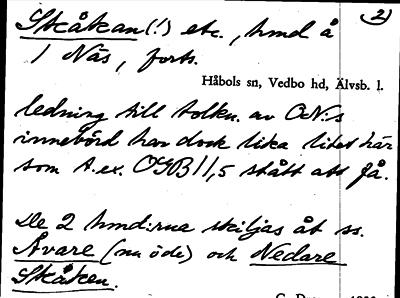 2)
Skåkan (!) etc., hmd å
1 Näs, forts.
Håbols sn, Vedbo hd, Älvsb. l.
ledning till tolkn. av ON:s
innebörd har dock lika litet här
som t.ex. OGB 11,5 stått att få.
De 2 hmd:rna skiljas åt ss.
Åvare (nu öde) och Nedare
Skåken.